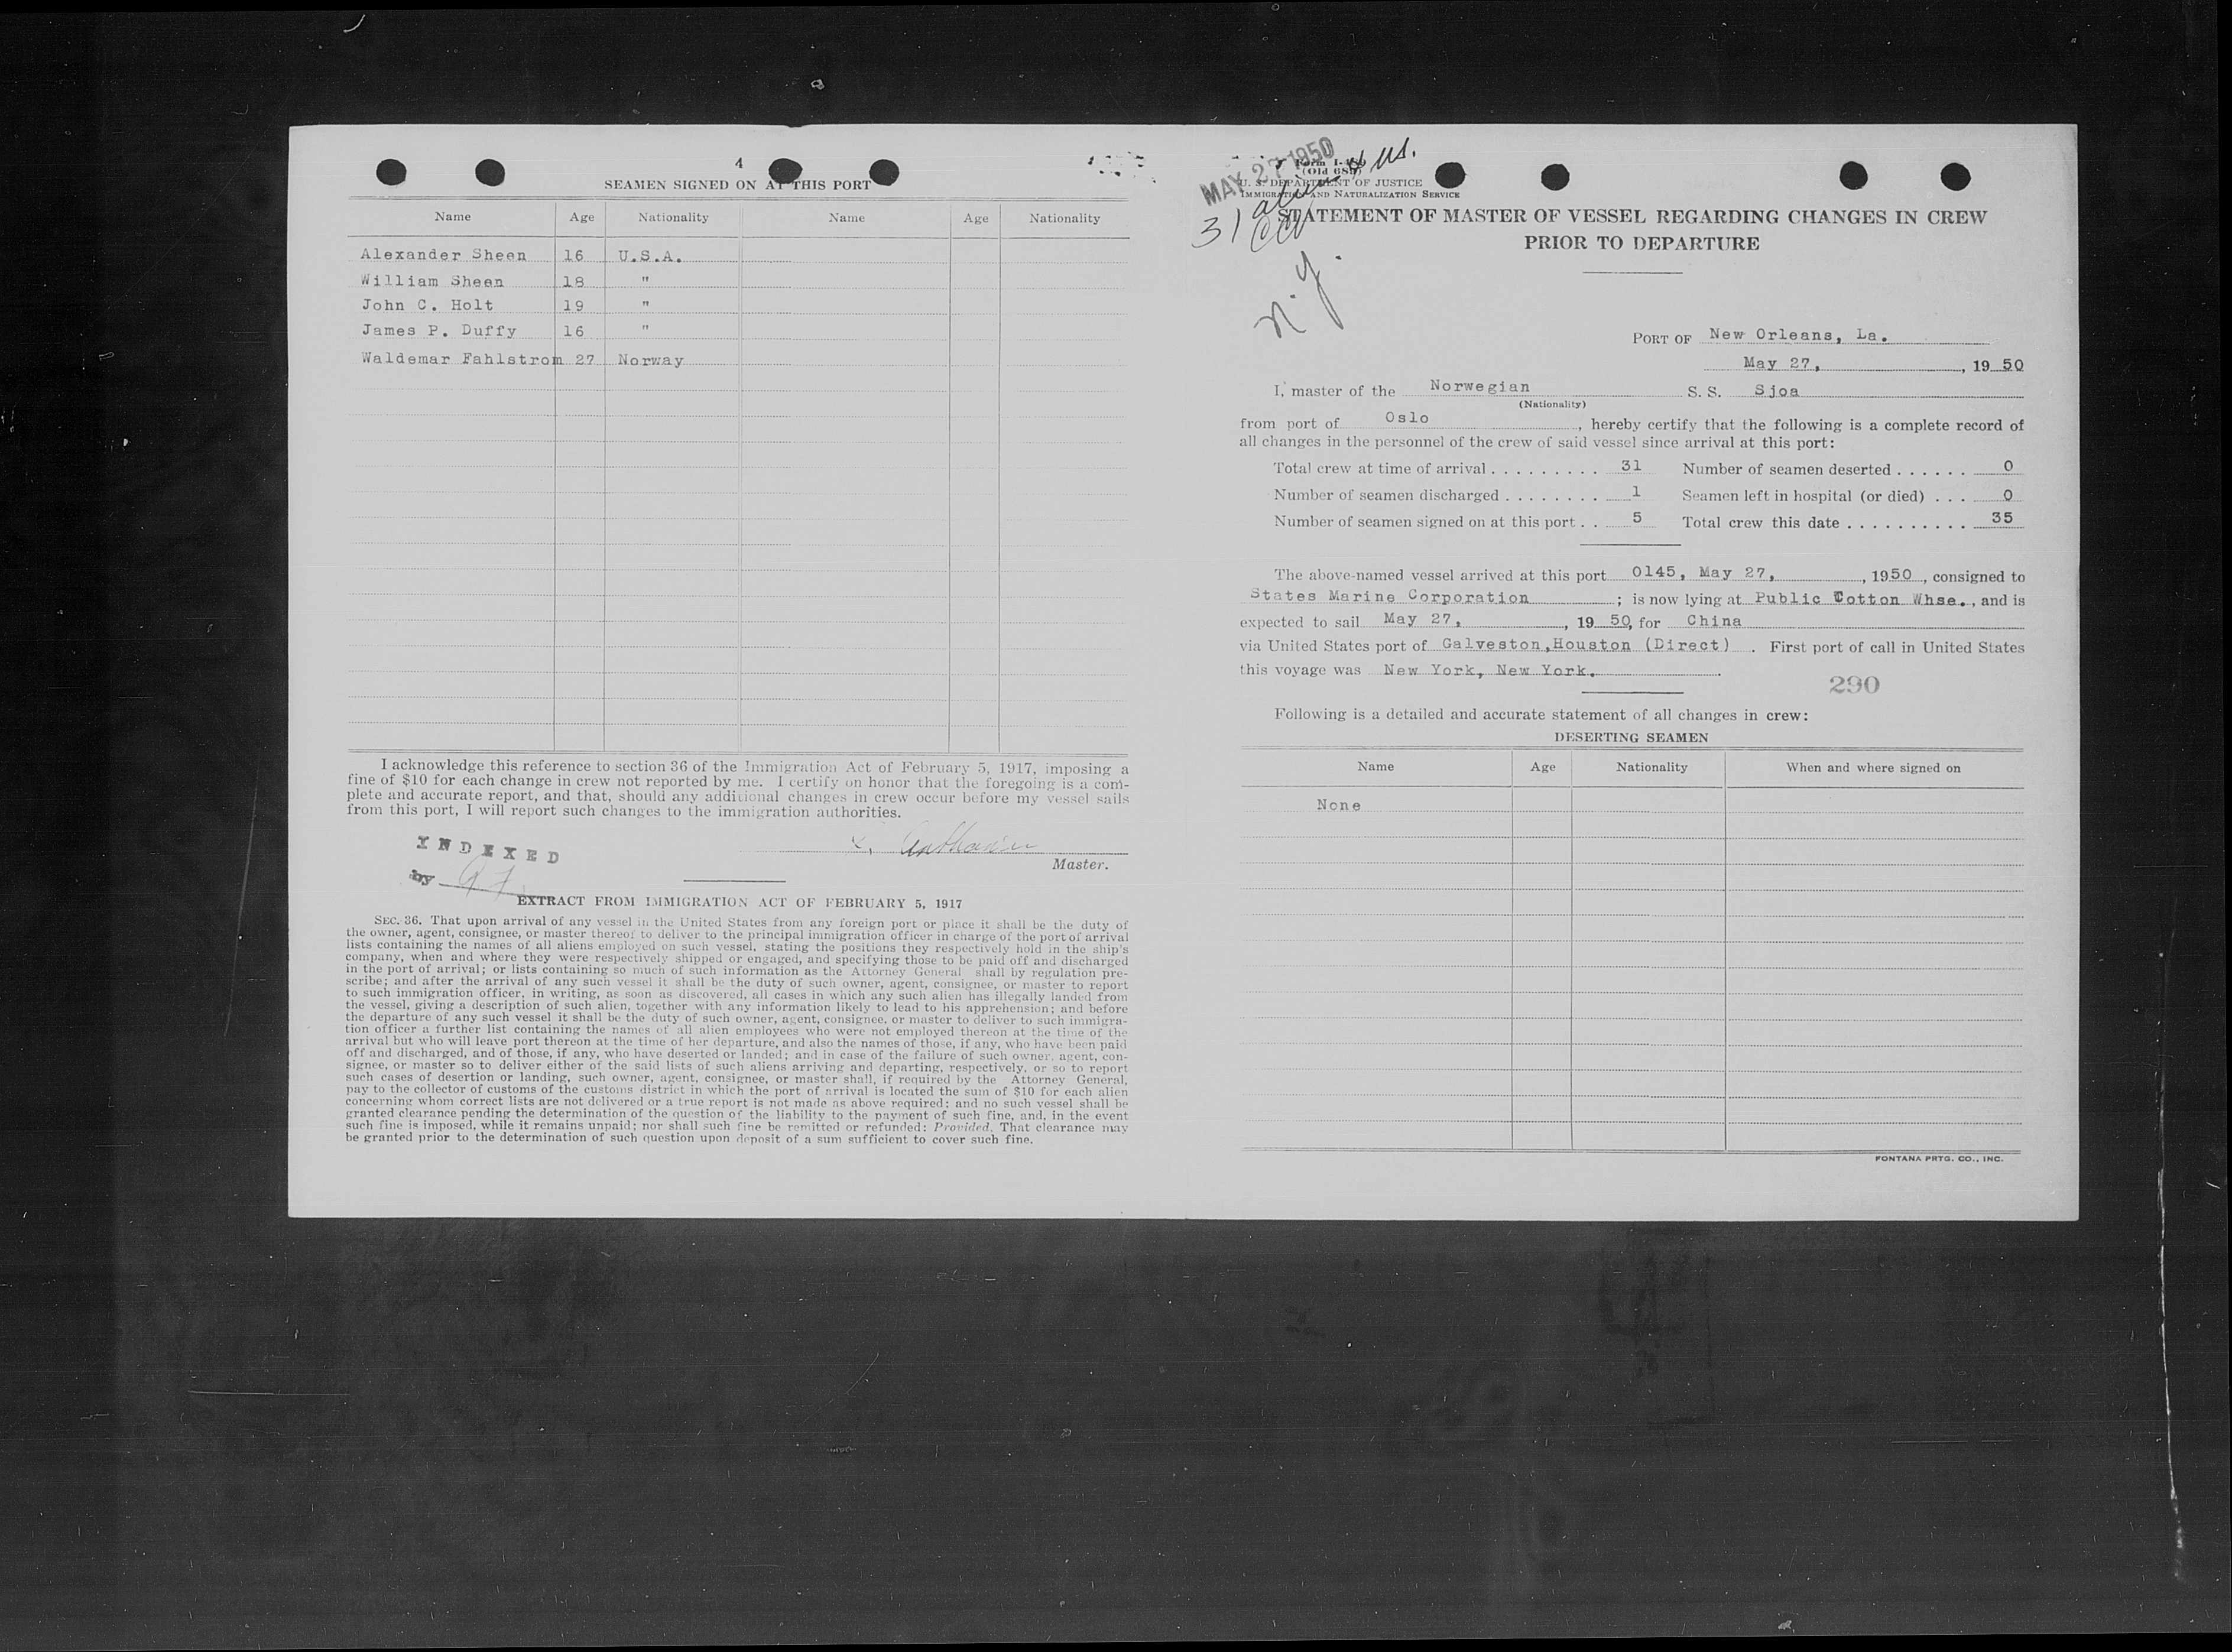 4
SEAMEN SIGNED ON AT THIS PORT
Name Age Nationality Name Age Nationality
Alexander Sheen 16 U.S.A.
William Sheen 18 "
John C. Holt 19 "
James P. Duffy 16 "
Waldemar Fahlstrom 27 Norway
I acknowledge this reference to section 36 of the Immigration Act of February 5, 1917, imposing a
fine of $10 for each change in crew not reported by me. I certify on honor that the foregoing is a com-
plete and accurate report, and that, should any additional changes in crew occur before my vessel sails
from this port, I will report such changes to the immigration authorities.
Master.
INDEXED
by
EXTRACT FROM IMMIGRATION ACT OF FEBRUARY 5, 1917
SEC. 36. That upon arrival of any vessel in the United States from any foreign port or place it shall be the duty of
the owner, agent, consignee, or master thereof to deliver to the principal immigration officer in charge of the port of arrival
lists containing the names of all aliens employed on such vessel, stating the positions they respectively hold in the ship's
company, when and where they were respectively shipped or engaged, and specifying those to be paid off and discharged
in the port of arrival; or lists containing so much of such information as the Attorney General shall by regulation pre-
scribe; and after the arrival of any such vessel it shall be the duty of such owner, agent, consignee, or master to report
to such immigration officer, in writing, as soon as discovered, all cases in which any such alien has illegally landed from
the vessel, giving a description of such alien, together with any information likely to lead to his apprehension; and before
the departure of any such vessel it shall be the duty of such owner, agent, consignee, or master to deliver to such immigra-
tion officer a further list containing the names of all alien employees who were not employed thereon at the time of the
arrival but who will leave port thereon at the time of her departure, and also the names of those, if any, who have been paid
off and discharged, and of those, if any, who have deserted or landed; and in case of the failure of such owner, agent, con-
signee, or master so to deliver either of the said lists of such aliens arriving and departing, respectively, or so to report
such cases of desertion or landing, such owner, agent, consignee, or master shall, if required by the Attorney General,
pay to the collector of customs of the customs district in which the port of arrival is located the sum of $10 for each alien
concerning whom correct lists are not delivered or a true report is not made as above required; and no such vessel shall be
granted clearance pending the determination of the question of the liability to the payment of such fine, and, in the event
such fine is imposed, while it remains unpaid; nor shall such fine be remitted or refunded: Provided, That clearance may
be granted prior to the determination of such question upon deposit of a sum sufficient to cover such fine.
MAY 27 1950
Form I-489
(Old 689)
U. S. DEPARTMENT OF JUSTICE
IMMIGRATION AND NATURALIZATION SERVICE
31
N.Y.
STATEMENT OF MASTER OF VESSEL REGARDING CHANGES IN CREW
PRIOR TO DEPARTURE
PORT OF New Orleans, La.
May 27, , 19 50
I, master of the Norwegian S. S. Sjoa
(Nationality)
from port of Oslo , hereby certify that the following is a complete record of
all changes in the personnel of the crew of said vessel since arrival at this port:
Total crew at time of arrival . . . . . . . . . 31 Number of seamen deserted . . . . . . 0
Number of seamen discharged . . . . . . . . 1 Seamen left in hospital (or died) . . . 0
Number of seamen signed on at this port . . 5 Total crew this date . . . . . . . . . . 35
The above-named vessel arrived at this port 0145, May 27, , 1950 , consigned to
States Marine Corporation ; is now lying at Public Cotton Whse. , and is
expected to sail May 27, , 19 50, for China
via United States port of Galveston,Houston (Direct) . First port of call in United States
this voyage was New York, New York. .
290
Following is a detailed and accurate statement of all changes in crew:
DESERTING SEAMEN
Name Age Nationality When and where signed on
None
FONTANA PRTG. CO., INC.